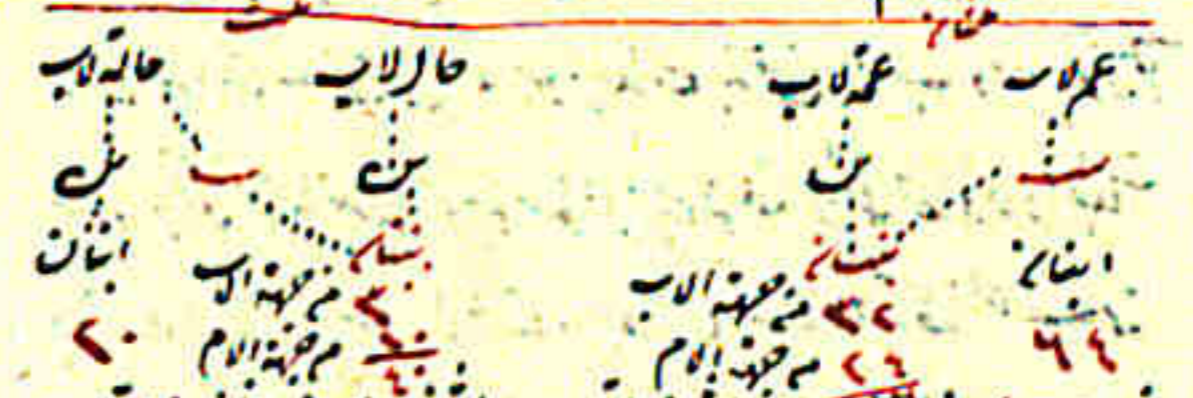 ثلثان ثلث
عم لاب عمة لاب خال لاب خالة لاب
بنت بن بن بنت بن
ابنان بنتان بنتان ابنان
٦٤ ٣٢ من جهة الاب ٣٠ من جهة الاب ٢٠
٢٤ من جهة الام ١٠ من جهة الام
٤٠